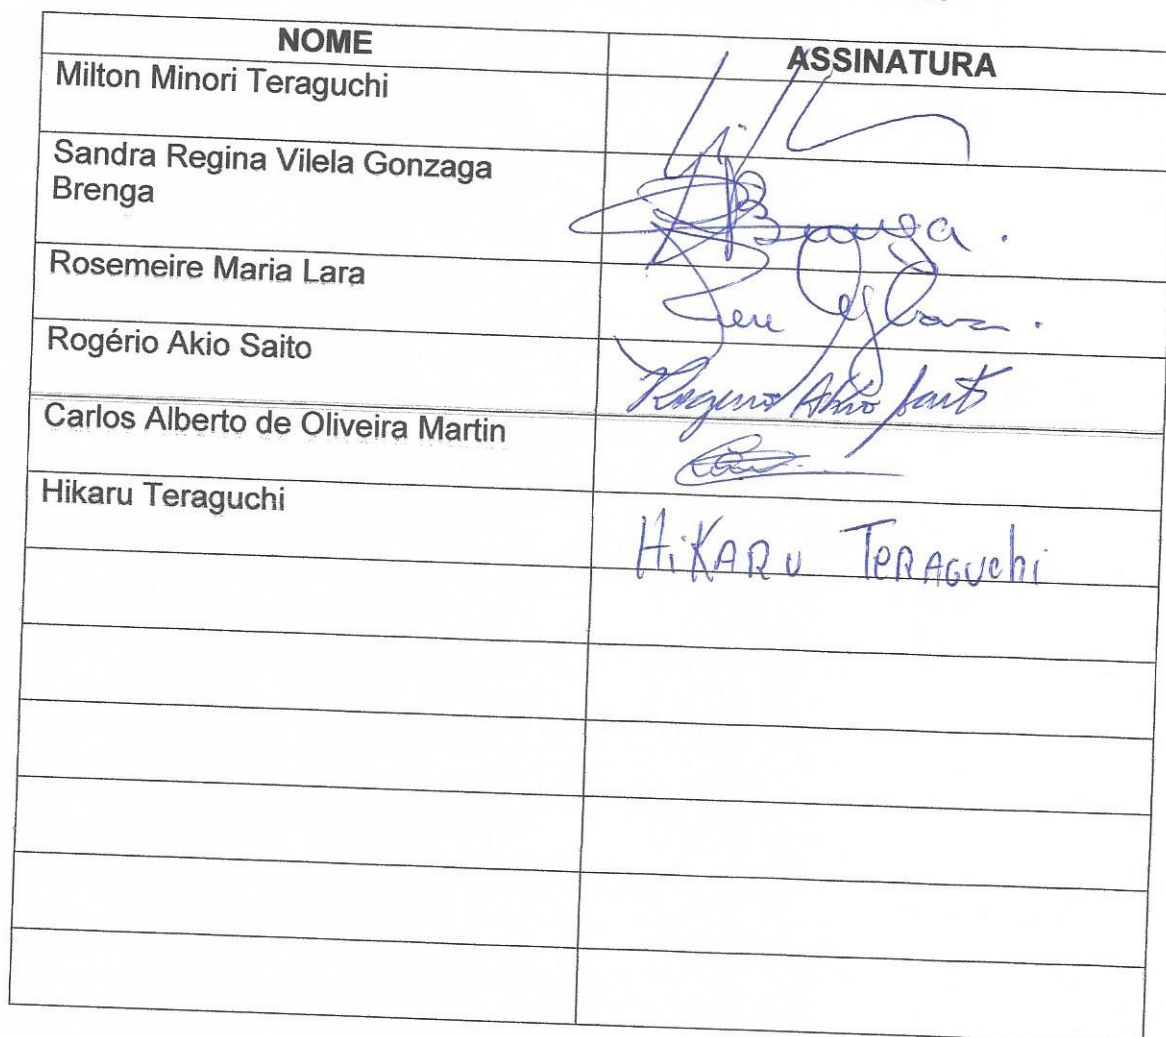 NOME
ASSINATURA
Milton Minori Teraguchi
Sandra Regina Vilela Gonzaga
Brenga
Brenga.
Rosemeire Maria Lara
Rogério Akio Saito
Rogerio Akio Saito
Carlos Alberto de Oliveira Martin
Hikaru Teraguchi
HiKARU TeRAGUchi